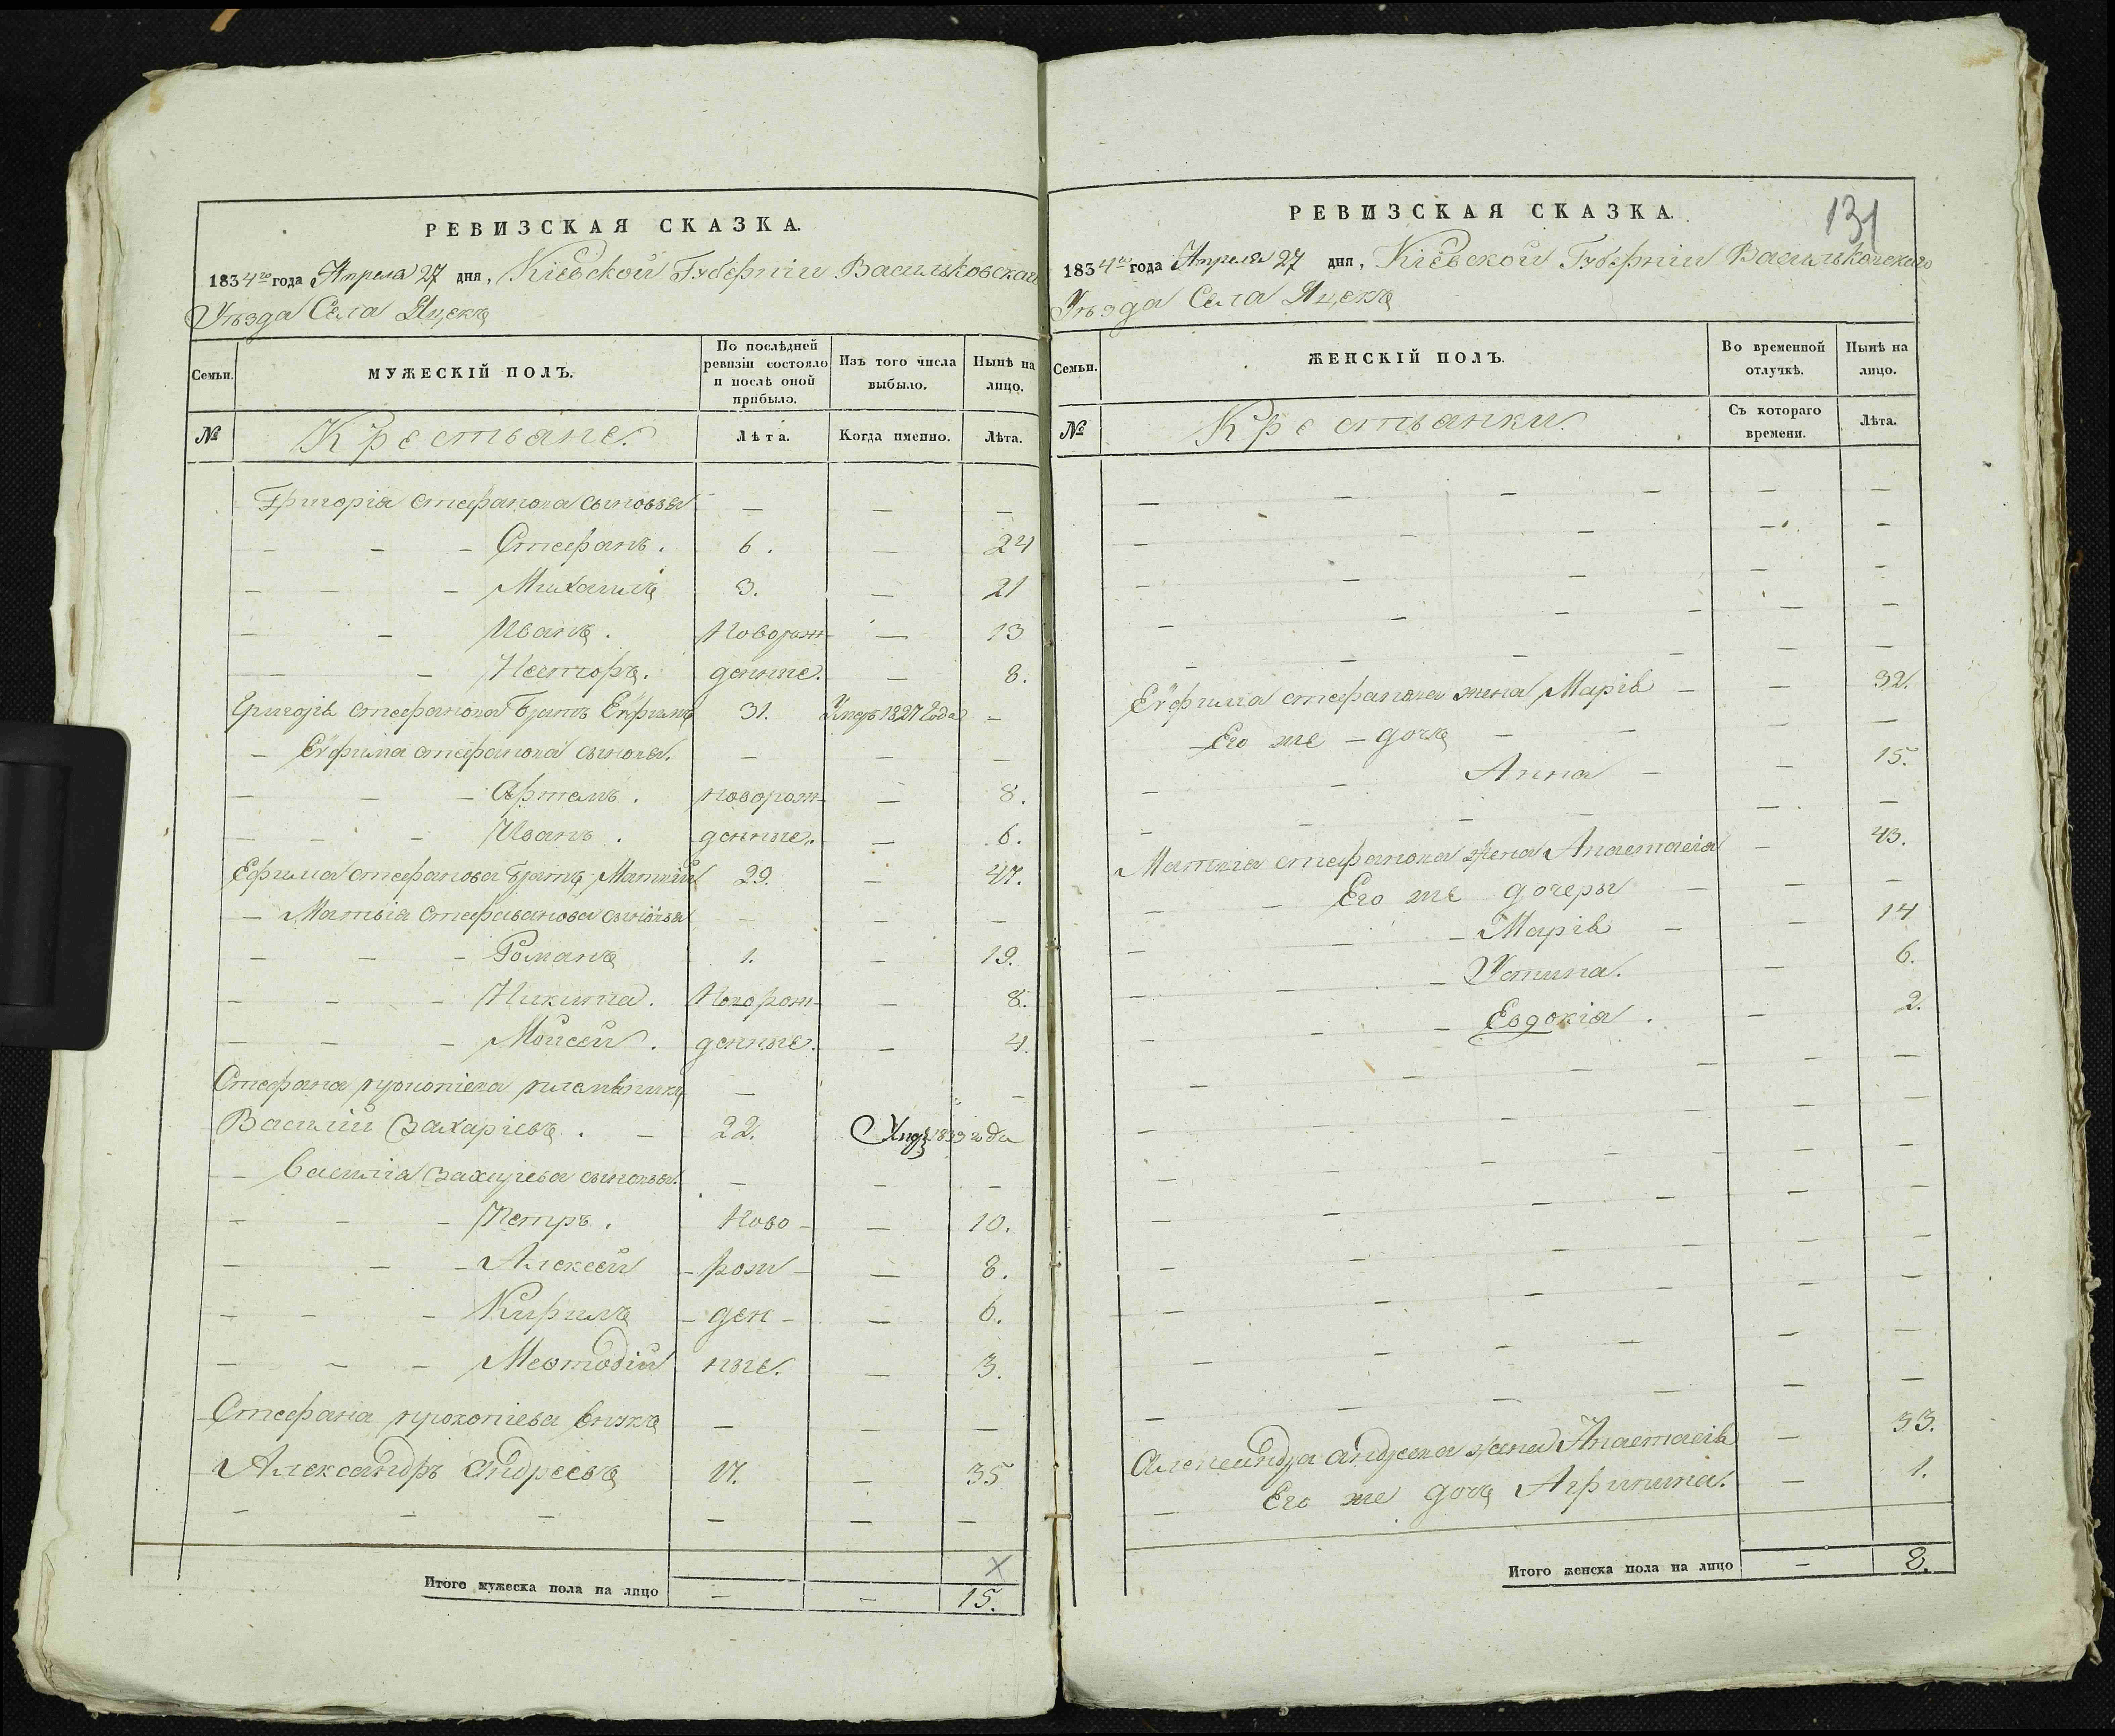 РЕВИЗСКАЯ СКАЗКА.
1834го года Апреля 27 дня, Кіевской Губерніи Васильковскаго
Уѣзда Села Яцекъ
Семьи.
МУЖЕСКІЙ ПОЛЪ.
По послѣдней ревизіи состояло и послѣ оной прибыло.
Изъ того числа выбыло.
Нынѣ на лицо.
№
Крестьяне.
Лѣта.
Когда именно.
Лѣта.
Григорія Стефанова сыновья — — —
— — — Стефанъ. 6. — 24
— — — Михаилъ 3. — 21
— — Иванъ. Новорож- — 13
— — Несторъ. денные. — 8.
Григорія Стефанова братъ Евфимъ 31. Умеръ 1827 года —
— Евфима Стефанова сыновья. — — —
— — — Артемъ. новорож- — 8.
— — — Иванъ. денные. — 6.
Ефима Стефанова братъ Матвій 29. — 47.
— Матвія Стефанова сыновья — — —
— — — Романъ 1. — 19.
— — — Никита. Новорож- — 8.
— — — Моисей. денные. — 4.
Стефана прокопіева племѣникъ — —
Василій Захаріевъ. — 22. 1833 года
— Василія Захаріева сыновья. — — —
— — — Петръ. Ново- — 10.
— — — Алексей рож- — 8.
— — — Кирилъ ден- — 6.
— — — Меѳтодій ные. — 3.
Стефана прокопіева внукъ — — —
Александръ Андреевъ 17. — 35
— — — — — —
Х
Итого мужеска пола на лицо — — 15.
РЕВИЗСКАЯ СКАЗКА.
131
1834го года Апреля 27 дня, Кіевской Губерніи Васильковскаго
Уѣзда Села Яцекъ
Семьи.
ЖЕНСКІЙ ПОЛЪ.
Во временной отлучкѣ.
Нынѣ на лицо.
№
Крестьянки.
Съ котораго времени.
Лѣта.
Евфима Стефанова жена Марія — — 32.
Его же — дочь — — — —
— — Анна — — 15.
Матвія Стефанова жена Анастасія — 43.
— — Его же дочеры — — —
— — — Марія — — 14
— — — Устина. — 6.
— — — Евдокія. — 2.
Александра Андреева жена Анастасія — 33.
— Его же дочь Агрипина. — 1.
Итого женска пола на лицо — 8.